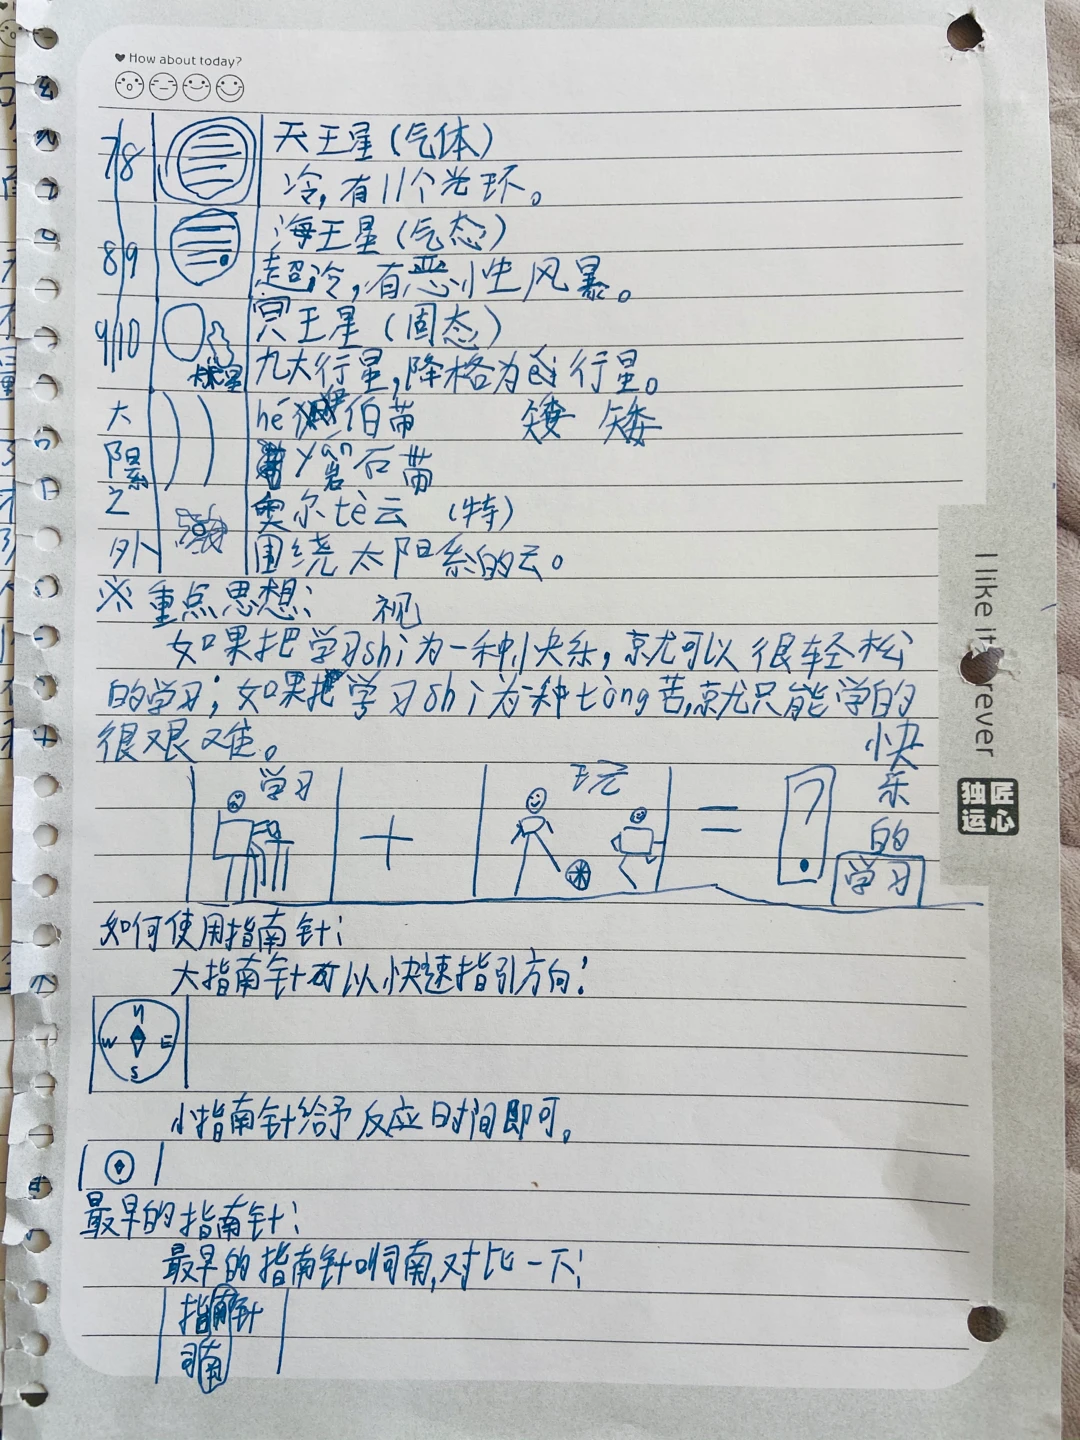 How about today?
7/8 天王星(气体)
冷,有11个光环。
8/9 海王星(气态)
超冷,有恶性风暴。
9/10 冥王星(固态)
九大行星,降格为ǎi行星。
太阳系之外
hé 伯带 矮 矮
yán 岩石带
奥尔tè云 (特)
围绕太阳系的云。
※重点思想: 视
如果把学习shì为一种快乐,就可以很轻松
的学习;如果把学习shì为一种tòng苦,就只能学的
很艰难。
学习 + 玩 = ? 快乐的学习
如何使用指南针:
大指南针可以快速指引方向:
n
W E
S
小指南针给予反应时间即可。
最早的指南针:
最早的指南针叫司南,对比一下:
指南针
司南
I like it rever
独匠
运心